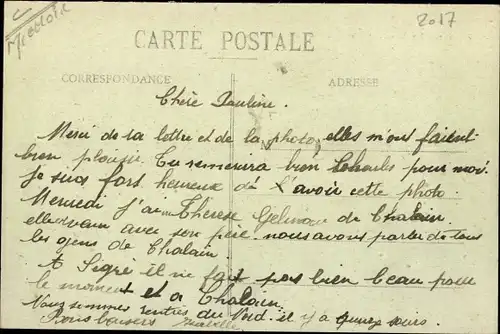 C
Michelle
2017
CARTE POSTALE
CORRESPONDANCE
ADRESSE
Chère Pauline.
Merci de ta lettre et de la photo, elles m'ont faient
bien plaisir. Tu remerciera bien Charles pour moi.
Je suis fort heureux de l'avoir cette photo.
Mercredi j'ai Therese de Chalain
elle avec son père. nous avons parler de tous
les gens de Chalain
A Segré il ne fait pas bien beau pour
le moment et a Chalain.
Nous sommes rentrés du Nord. il y a quinze jours.
Bons baisers